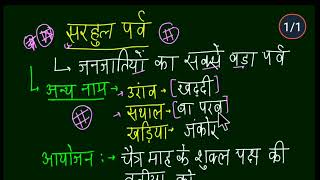 1/1
सरहुल पर्व
जनजातियों का सबसे बड़ा पर्व
अन्य नाम : उरांव [खद्दी]
संथाल [बा परब]
खड़िया जंकोर
आयोजन : चैत्र माह के शुक्ल पक्ष की
तृतीया को